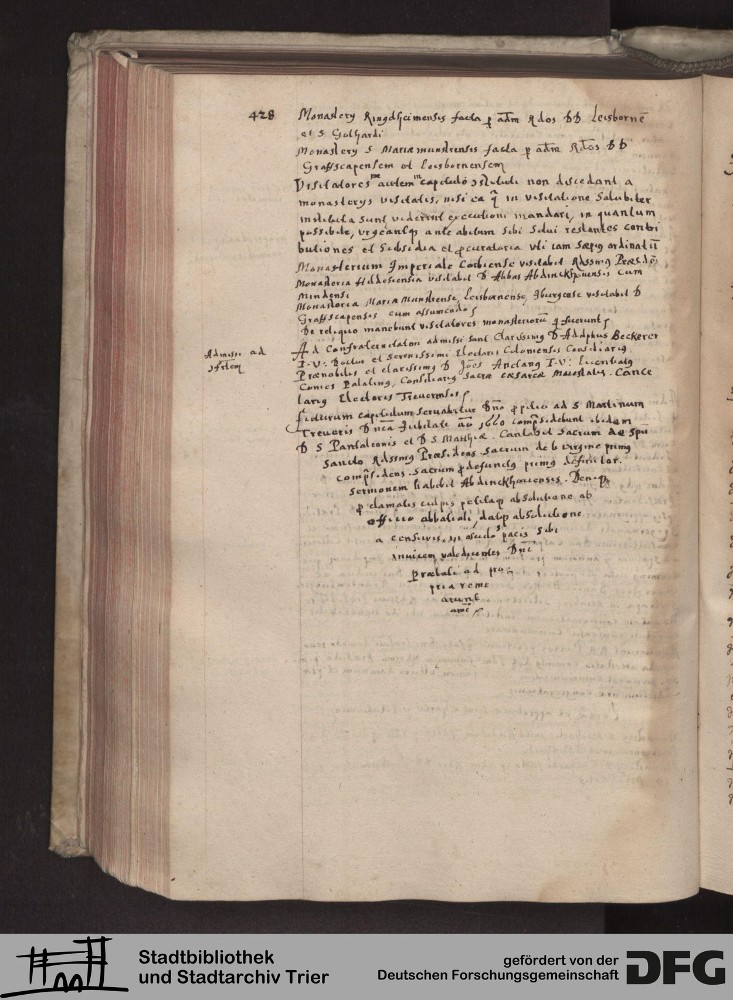 428
Monastery Ringelheimensis facta p adm Rdos DD Leisborne
et S Gothardi
Monastery S Mariamunstrensis facta p adm Rdos DD
Graffscapensem et Leisbornensem
Visitatores autem capitulo non discedant a
monasterys visitatis, nisi ea q in visitatione salubriter
instituta sunt viderint executioni mandari, in quantum
possibile, urgeantq ante abitum sibi solui restantes contri
butiones et subsidia et procuratoria uti iam saepiq ordinatu
Monasterium Imperiale Corbiense visitabit Rdssimq Praeses
Monasteria Hildesiensia visitabit D Abbas Abdinckhouensis cum
Mindensi
Monasteria Maria Munstrense, Leisbornense, Iburgense visitabit D
Graffscapensis cum assumendo
De reliquo manebunt visitatores monasteriorum q fuerunt
Admissi ad
Ad Confraternitatem admissi sunt Clarissimq D Adolphus Beckerer
I.V. Doctor et Serenissimi Electoris Coloniensis Consiliariq
Praenobilis et clarissimq D Joes Anetang I.V. Licentiatq
Comes Palatinq, Consiliariq Sacrae Caesareae Maiestatis. Cance
lariq Electoris Treuerensis
futurum capitulum seruabitur Dno propitio ad S Martinum
Treueris Dnica Jubilate ao 1660 compsidebunt ibidem
D S Pantaleonis et D S Matthiae. Cantabit sacrum de Spu
Sancto Rdssmq Praesidens. Sacrum de b virgine primq
Compsidens. Sacrum p defunctq primq definitor.
Sermonem habebit Abdinckhouensis. Deniq
p clamatis culpis petitaq absolutione ab
officio abbatiali, datq absolutione
a censuris, in osculo pacis sibi
inuicem valedicentes Dni
Praelati ad pro
pria reme
arunt
ame
Stadtbibliothek
und Stadtarchiv Trier
gefördert von der
Deutschen Forschungsgemeinschaft
DFG